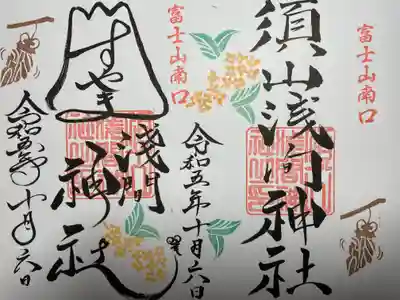 富士山南口
須山浅间神社
令和五年十月六日
富士山南口
すやま
浅間
神社
令和五年十月六日